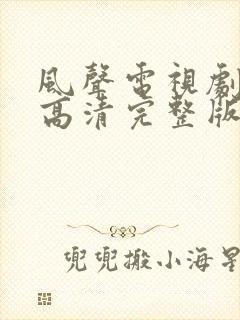 風聲電視劇
高清完整版
兜兜搬小海星